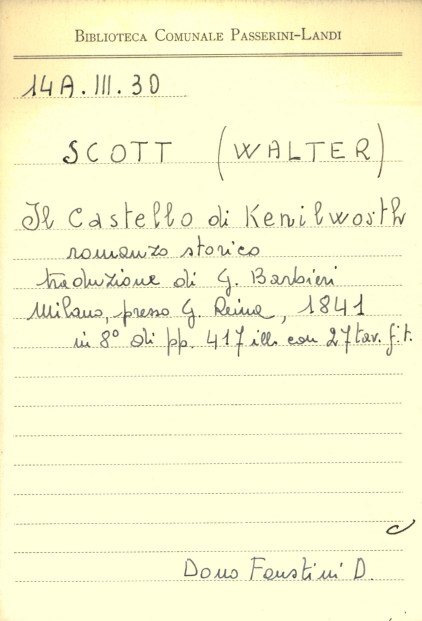 BIBLIOTECA COMUNALE PASSERINI-LANDI
14A.III.30
SCOTT (WALTER)
Il Castello di Kenilworth
romanzo storico
traduzione di G. Barbieri
Milano, presso G. Reina, 1841
in 8° di pp. 417 ill. con 27 tav. f.t.
Dono Faustini D.